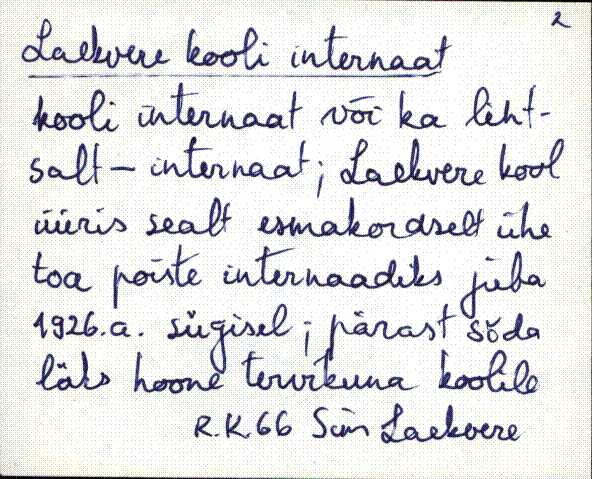 2
Laekvere kooli internaat
kooli internaat või ka liht-
salt – internaat; Laekvere kool
üüris sealt esmakordselt ühe
toa poiste internaadiks juba
1926.a. sügisel; pärast sõda
läks hoone tervikuna koolile
R.K.66 Sim Laekvere